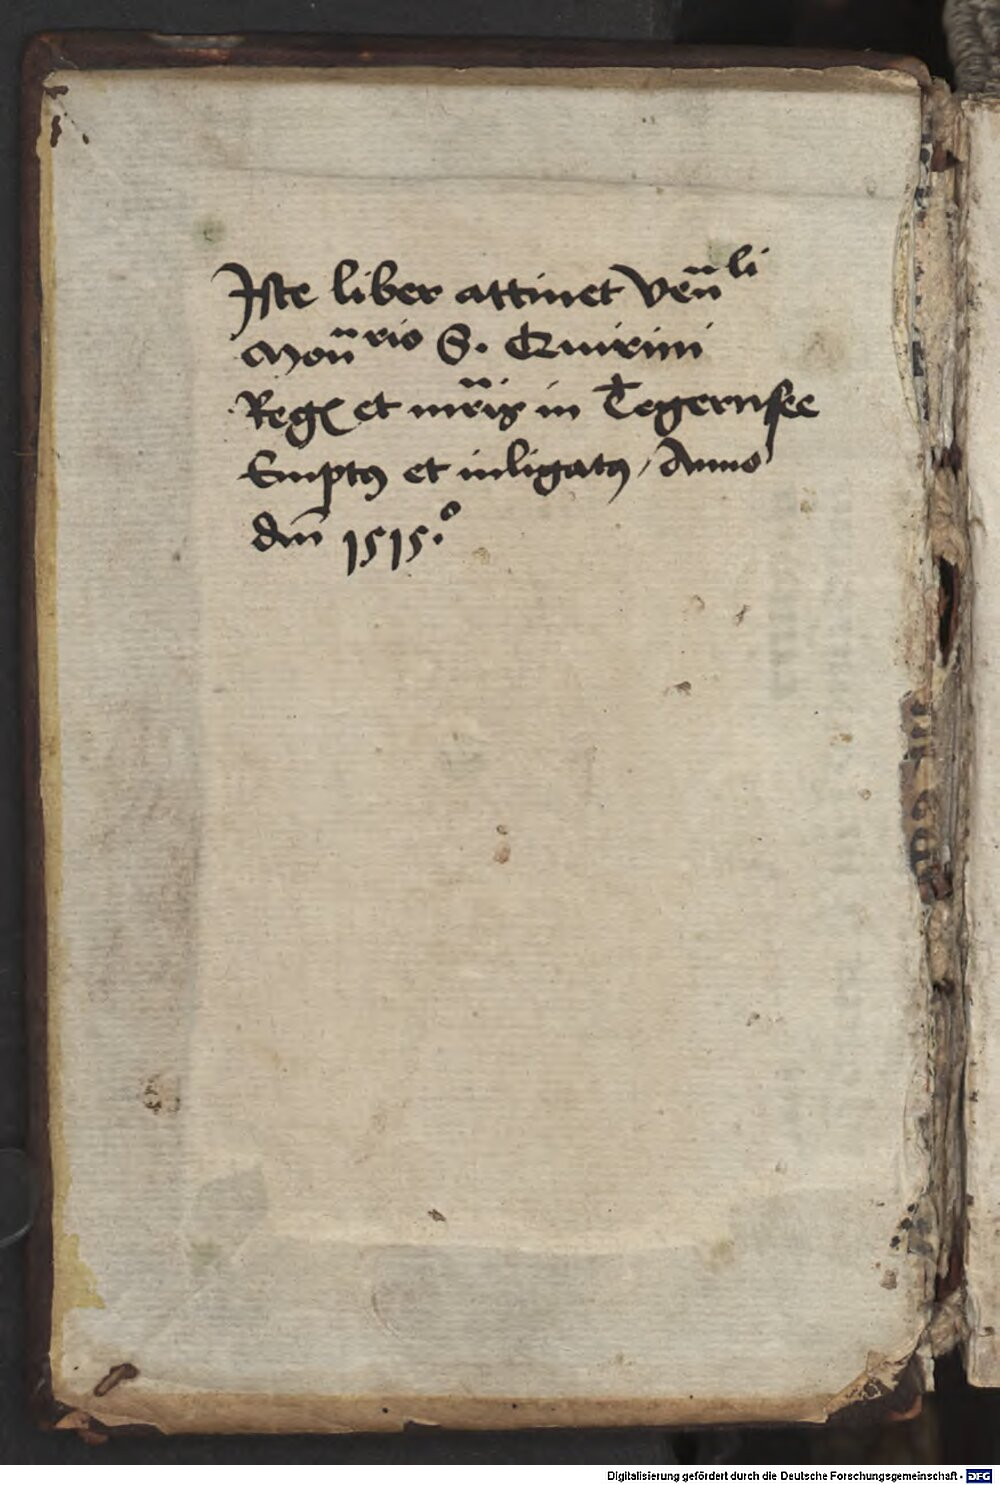 Iste liber attinet Ven̄li
Mon̄rio S. Quirini
Regꝭ et mr̄is in Tegernsee
Emptꝰ et inligatꝰ / Anno
dm̄ 1515.º
Digitalisierung gefördert durch die Deutsche Forschungsgemeinschaft - DFG